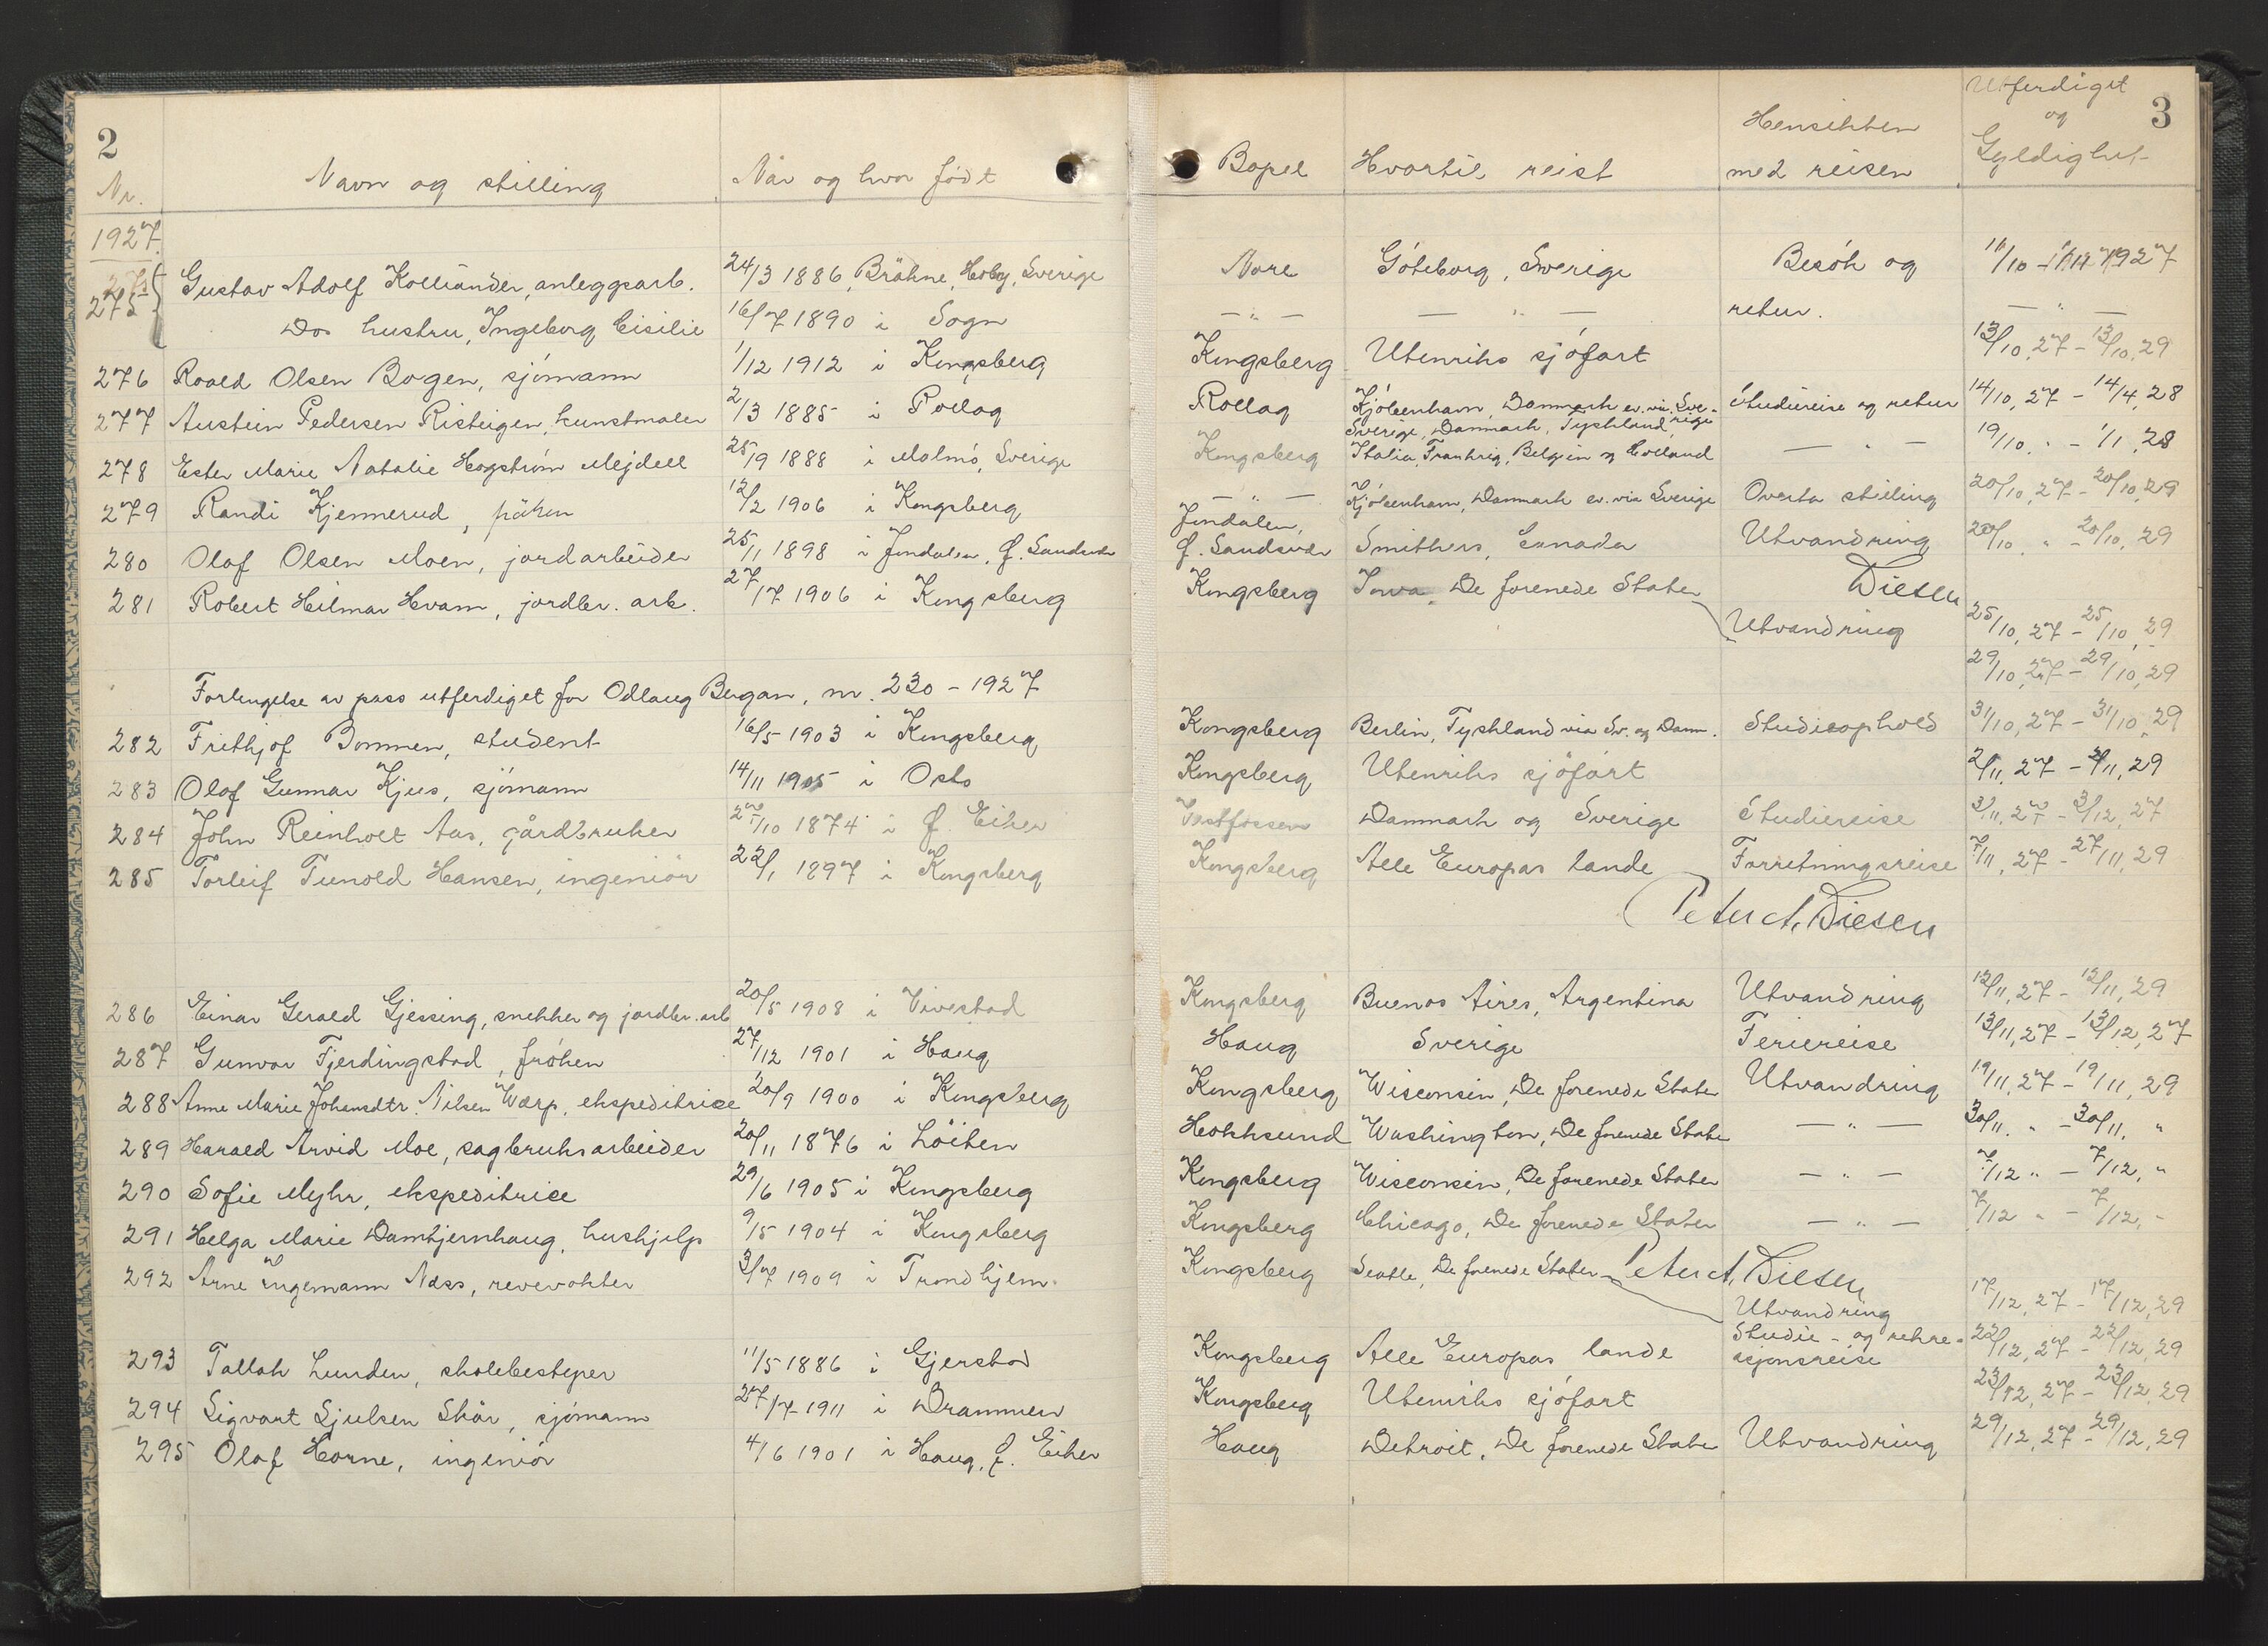 2
Nr.
Navn og stilling
Når og hvor født
Bopel
Hvortil reist
Hensikten
med reisen
Utferdiget
og
Gyldighet
3
1927.
275 Gustav Adolf Kolliander, anleggsarb. 24/3 1886, Bråhne, Hoby, Sverige Nore Göteborg, Sverige Besök og 11/10 - 1927
Dos hustru, Ingeborg Cisilie 16/7 1890 i Sogn —"— —"— retur. —"—
276 Roald Olsen Bogen, sjömann 1/12 1912 i Kongsberg Kongsberg Utenriks sjöfart 13/10, 27 - 13/10, 29
277 Austein Pedersen Risteigen, kunstmaler 2/3 1885 i Rollag Rollag Kjöbenhavn, Danmark ev. via Sverige Studiereise og retur 14/10, 27 - 14/4, 28
278 Ester Marie Natalie Hagström Mejdell 25/9 1888 i Malmö, Sverige Kongsberg Sverige, Danmark, Tyskland,
Italia, Frankrig, Belgien og Holland —"— 19/10 " - 1/1, 28
279 Randi Kjennerud, fröken 12/2 1906 i Kongsberg —"— Kjöbenhavn, Danmark ev. via Sverige Overta stilling 20/10, 27 - 20/10, 29
280 Olaf Olsen Moen, jordarbeider 25/11 1898 i Jondalen, Ö. Sandsvær Jondalen,
Ö. Sandsvær Smithers, Canada Utvandring 20/10 " - 20/10, 29
281 Robert Hilmar Hvam, jordbr. arb. 27/7 1906 i Kongsberg Kongsberg Iowa, De forenede Stater Diesen
Utvandring 25/10, 27 - 25/10, 29
Forlengelse av pass utferdiget for Odlaug Bergan, nr. 230 - 1927 29/10, 27 - 29/10, 29
282 Frithjof Bommen, student 16/5 1903 i Kongsberg Kongsberg Berlin, Tyskland via Sv. og Danm. Studieophold 31/10, 27 - 31/10, 29
283 Olaf Gunnar Kjus, sjömann 14/11 1905 i Oslo Kongsberg Utenriks sjöfart 2/11, 27 - 2/11, 29
284 John Reinholt Aas, gårdbruker 27/10 1874 i Ö. Eiker Vestfossen Danmark og Sverige Studiereise 3/11, 27 - 3/12, 27
285 Torleif Tunold Hansen, ingeniör 22/1 1897 i Kongsberg Kongsberg Alle Europas lande Forretningsreise 7/11, 27 - 27/11, 29
Peter A. Diesen
286 Einar Gerald Gjessing, snekker og jordbr. arb 20/5 1908 i Vivestad Kongsberg Buenos Aires, Argentina Utvandring 12/11, 27 - 12/11, 29
287 Gunvor Fjerdingstad, fröken 27/12 1901 i Haug Haug Sverige Feriereise 13/11, 27 - 13/12, 27
288 Anne Marie Johansdtr. Nilsen Wærp, ekspeditrise 20/9 1900 i Kongsberg Kongsberg Wisconsin, De forenede Stater Utvandring 19/11, 27 - 19/11, 29
289 Harald Arvid Moe, sagbruksarbeider 20/11 1876 i Löiten Hokksund Washington, De forenede Stater —"— 30/11 " - 30/11, "
290 Sofie Myhr, ekspeditrise 29/6 1905 i Kongsberg Kongsberg Wisconsin, De forenede Stater —"— 7/12 " - 7/12, "
291 Helga Marie Damtjernhaug, hushjelp 9/5 1904 i Kongsberg Kongsberg Chicago, De forenede Stater —"— 7/12 " - 7/12, "
292 Arne Ingemann Næss, revevokter 3/7 1909 i Trondhjem. Kongsberg Seatle, De forenede Stater Peter A. Diesen
Utvandring 17/12, 27 - 17/12, 29
293 Tallak Lunden, skolebestyrer 11/5 1886 i Gjerstad Kongsberg Alle Europas lande Studie- og rekre-
asjonsreise 22/12, 27 - 22/12, 29
294 Sigvart Sjulsen Skår, sjömann 27/7 1911 i Drammen Kongsberg Utenriks sjöfart 23/12, 27 - 23/12, 29
295 Olaf Horne, ingeniör 4/6 1901 i Haug, Ö. Eiker Haug Detroit, De forenede Stater Utvandring 29/12, 27 - 29/12, 29